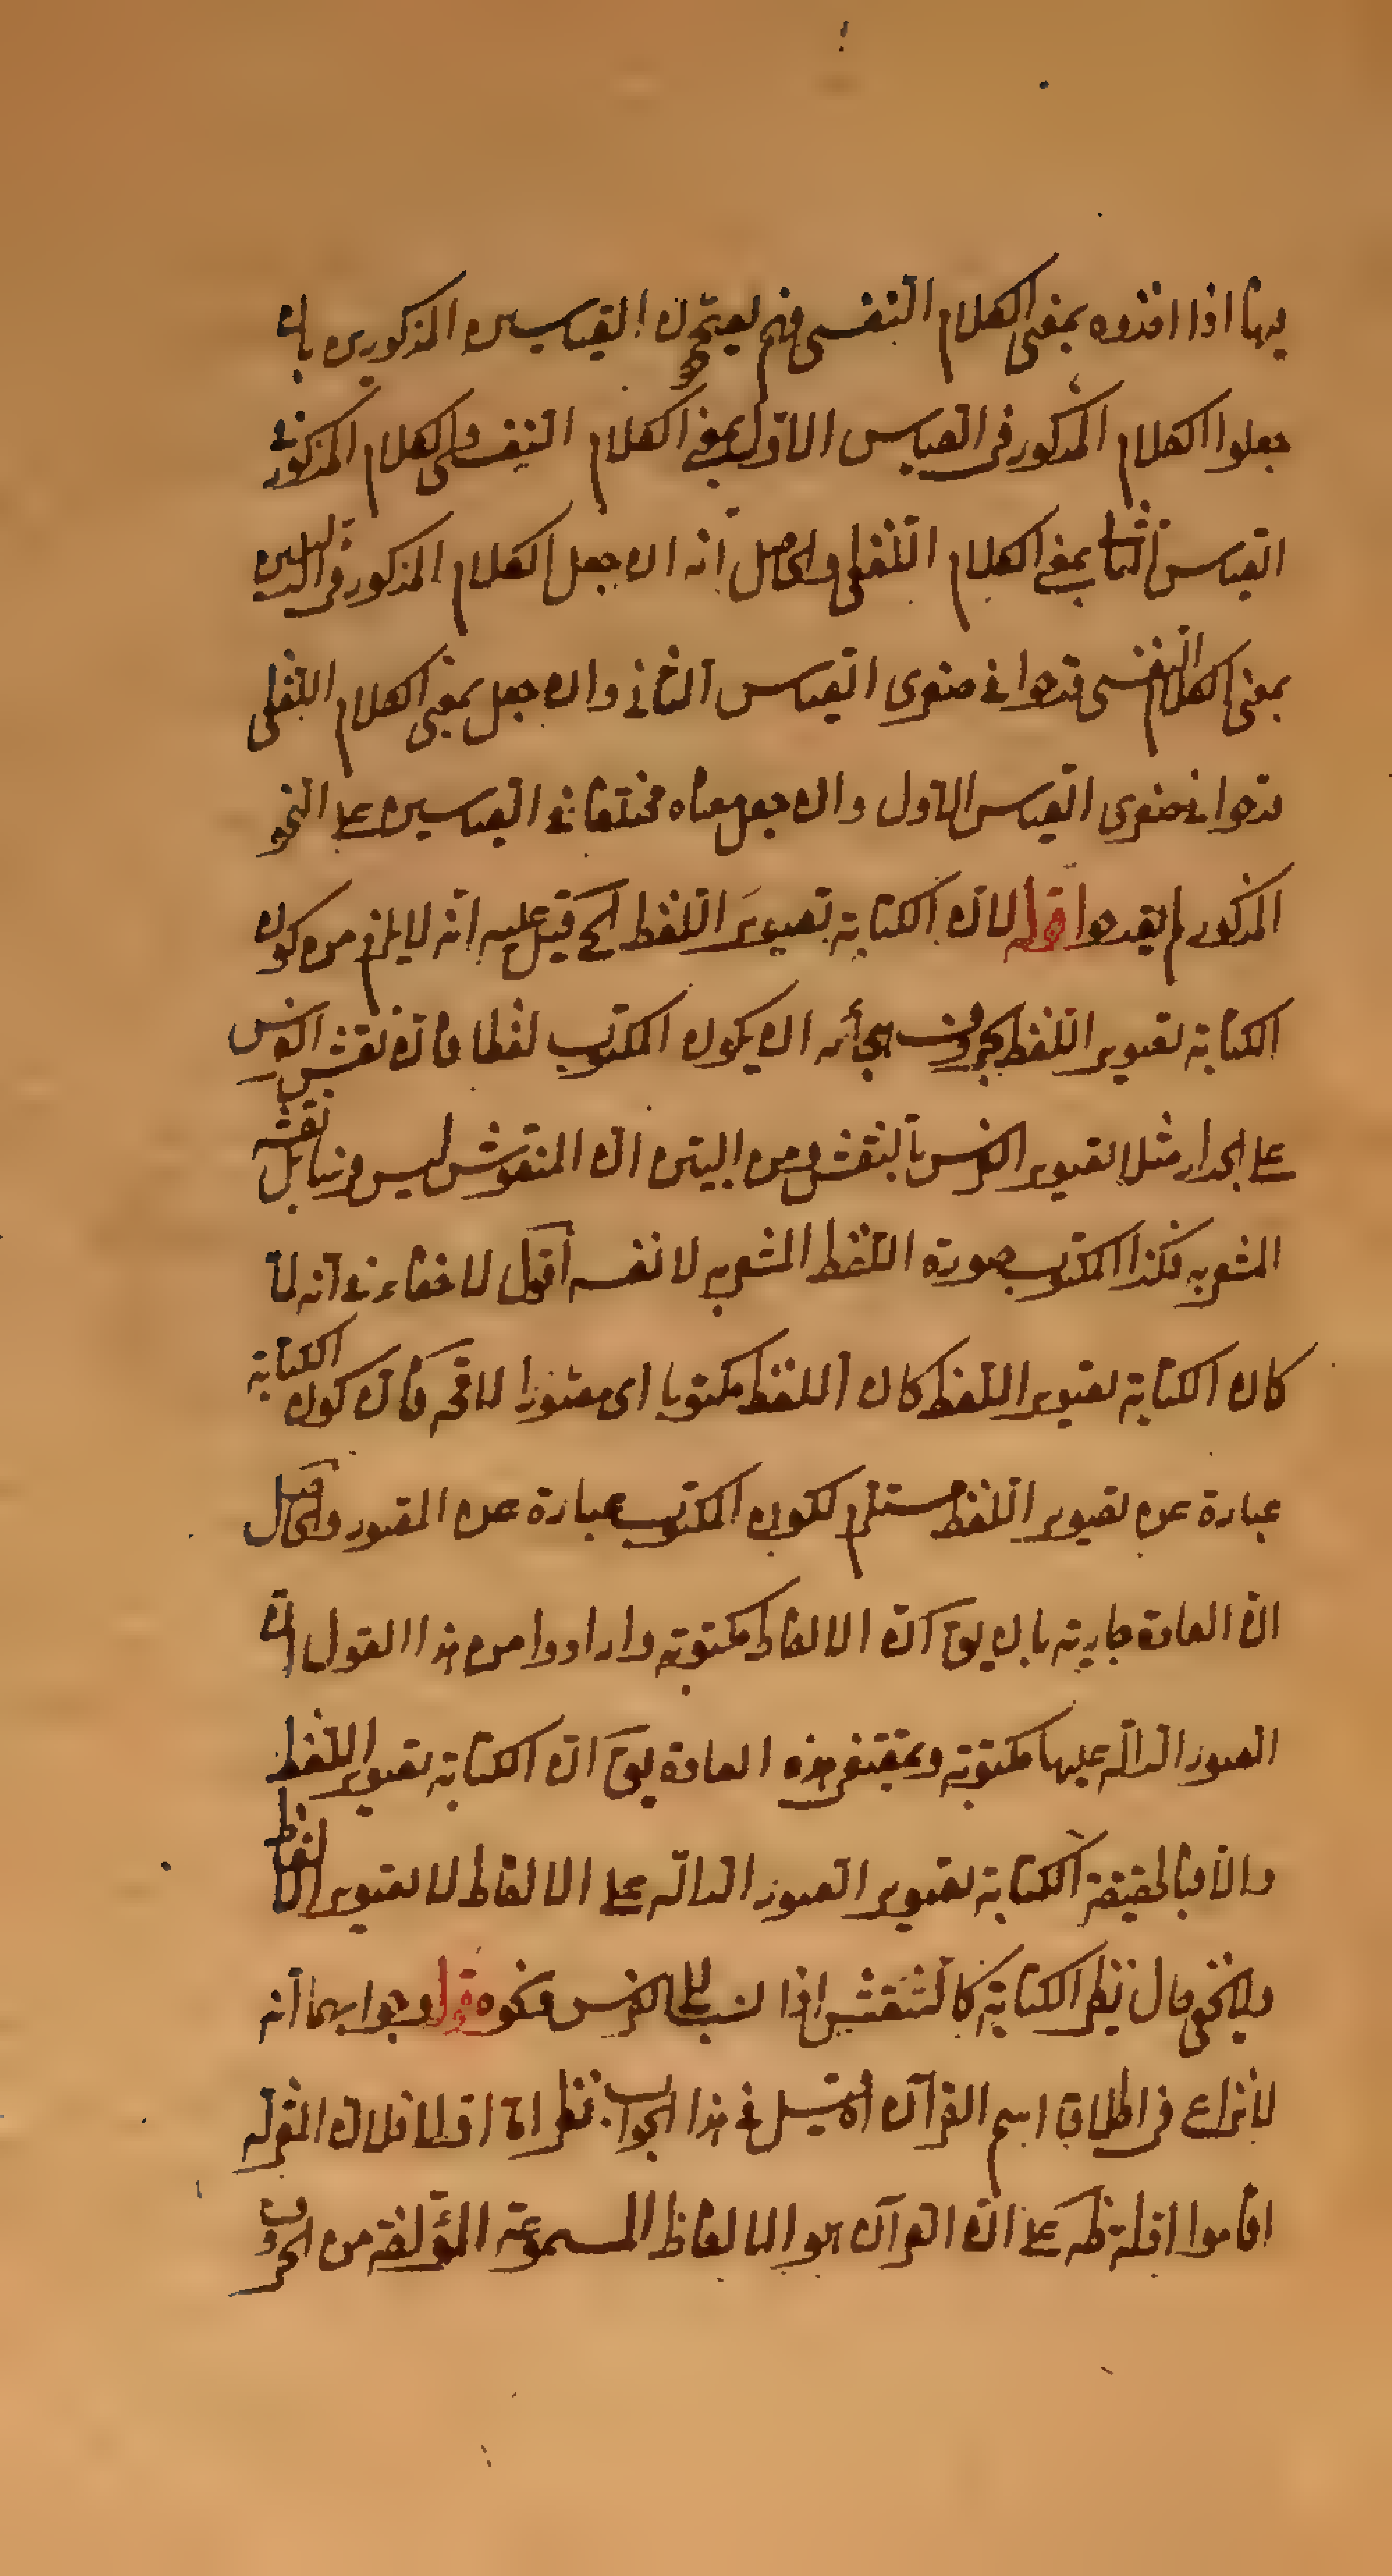 فيها اذا اخذوه بمعنى الكلام النفسى فهم يصححون القياسين المذكورين بان
جعلوا الكلام المذكور فى القياس الاول بمعنى الكلام النفسى والكلام المذكور فى
القياس الثانى بمعنى الكلام اللفظى والحاصل انه ان جعل الكلام المذكور فى القياسين
بمعنى الكلام النفسى قدحوا فى صغرى القياس الثانى وان جعل بمعنى الكلام اللفظى
قدحوا فى صغرى القياس الاول وان جعل معناه مختلفا فى القياسين على النحو
المذكور لم يقدحوا قوله لان الكتابة تصوير اللفظ الخ قيل عليه انه لا يلزم من كون
الكتابة تصوير اللفظ بحروف هجائه ان يكون المكتوب لفظا فان نقش الفرس
على الجدار مثلا تصوير الفرس بالنقش ومن البين ان المنقوش ليس فرسا بل نقشه
المشعر به فكذا المكتوب صورة اللفظ المشعر به لا نفسه اقول لا خفاء فى انه لما
كان الكتابة تصوير اللفظ كان اللفظ مكتوبا اى مصورا لا محة فان كون الكتابة
عبارة عن تصوير اللفظ مستلزم لكون المكتوب عبارة عن المصور والحاصل
ان العادة جارية بان يق ان الالفاظ مكتوبة وارادوا من هذا القول ان
الصور الدالة عليها مكتوبة وبمقتضى هذه العادة يق ان الكتابة تصوير اللفظ
والا فبالحقيقة الكتابة تصوير الصور الدالة على الالفاظ لا تصوير الالفاظ
ولا يخفى حال نظير الكتابة كالنقش اذا نسب الى الفرس ونحوه قوله وجوابهما انه
لا نزاع فى اطلاق اسم القرآن اه قيل فى هذا الجواب نظر اما اولا فلان المعتزلة
اقاموا ادلة ظه على ان القرآن هو الالفاظ المسموعة المؤلفة من الحروف